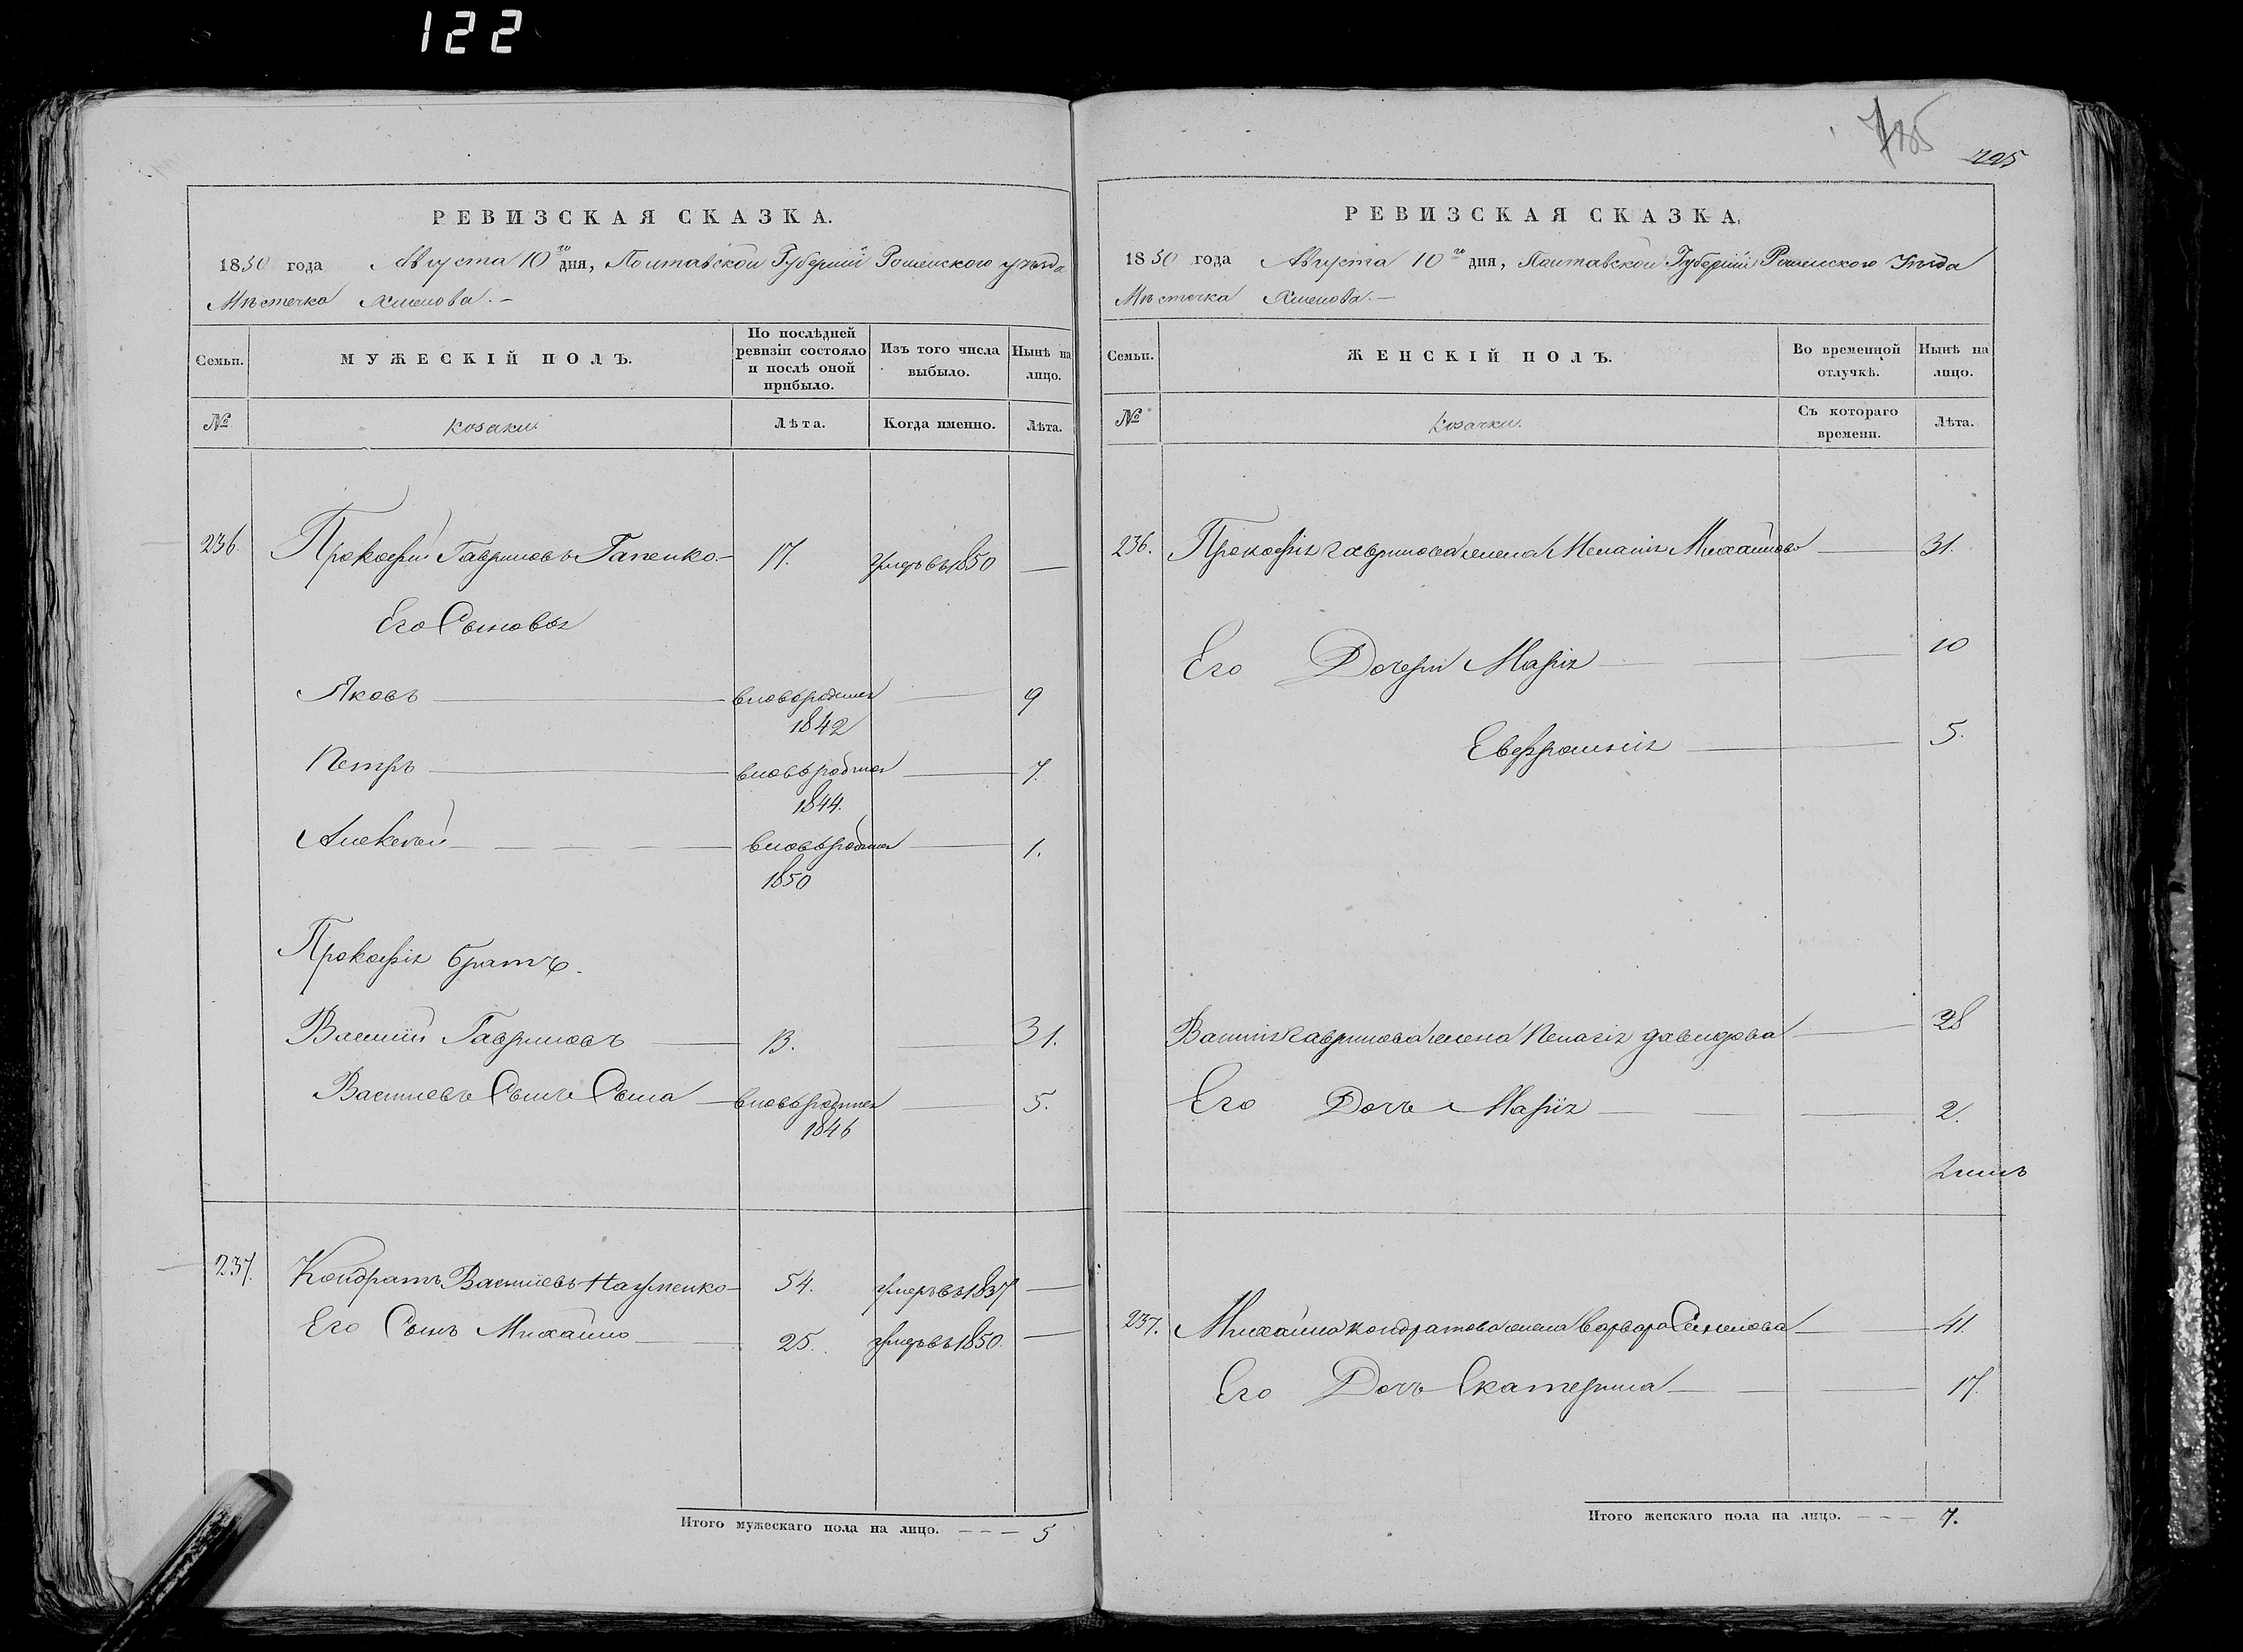 122
РЕВИЗСКАЯ СКАЗКА.
1850 года Августа 10го дня, Полтавской Губерніи Роменского уѣзда
Мѣстечка Хмелова.–
Семьи. МУЖЕСКІЙ ПОЛЪ. По послѣдней ревизіи состояло и послѣ оной прибыло. Изъ того числа выбыло. Нынѣ на лицо.
№ козаки. Лѣта. Когда именно. Лѣта.
236. Прокофій Гавриловъ Гапенко. 17. умеръ въ 1850 —
Его Сыновья
Яковъ вновьродился 1842 9
Петръ вновьродился 1844. 7.
Алексей вновьродился 1850 1.
Прокофія братъ.
Василій Гавриловъ 13. 31.
Васильевъ Сынъ Сыла вновьродился 1846 5.
237. Кондратъ Васильевъ Науменко 54. умеръ въ 1837 —
Его Сынъ Михайло 25. умеръ въ 1850. —
Итого мужескаго пола на лицо. – – – 5
785
725
РЕВИЗСКАЯ СКАЗКА.
1850 года Августа 10го дня, Полтавской Губерніи Роменского Уѣзда
Мѣстечка Хмелова.–
Семьи. ЖЕНСКІЙ ПОЛЪ. Во временной отлучкѣ. Нынѣ на лицо.
№ козачки. Съ котораго времени. Лѣта.
236. Прокофія гаврилова жена Меланія Михайлова 31.
Его Дочери Марія 10
Евфросинія 5.
Василія гаврилова жена Пелагія давидова 28
Его Дочь Марія 2.
237. Михайла кондратова жена Варвара Семенова 41.
Его Дочь Екатерина 17.
Итого женскаго пола на лицо. – – – 7.